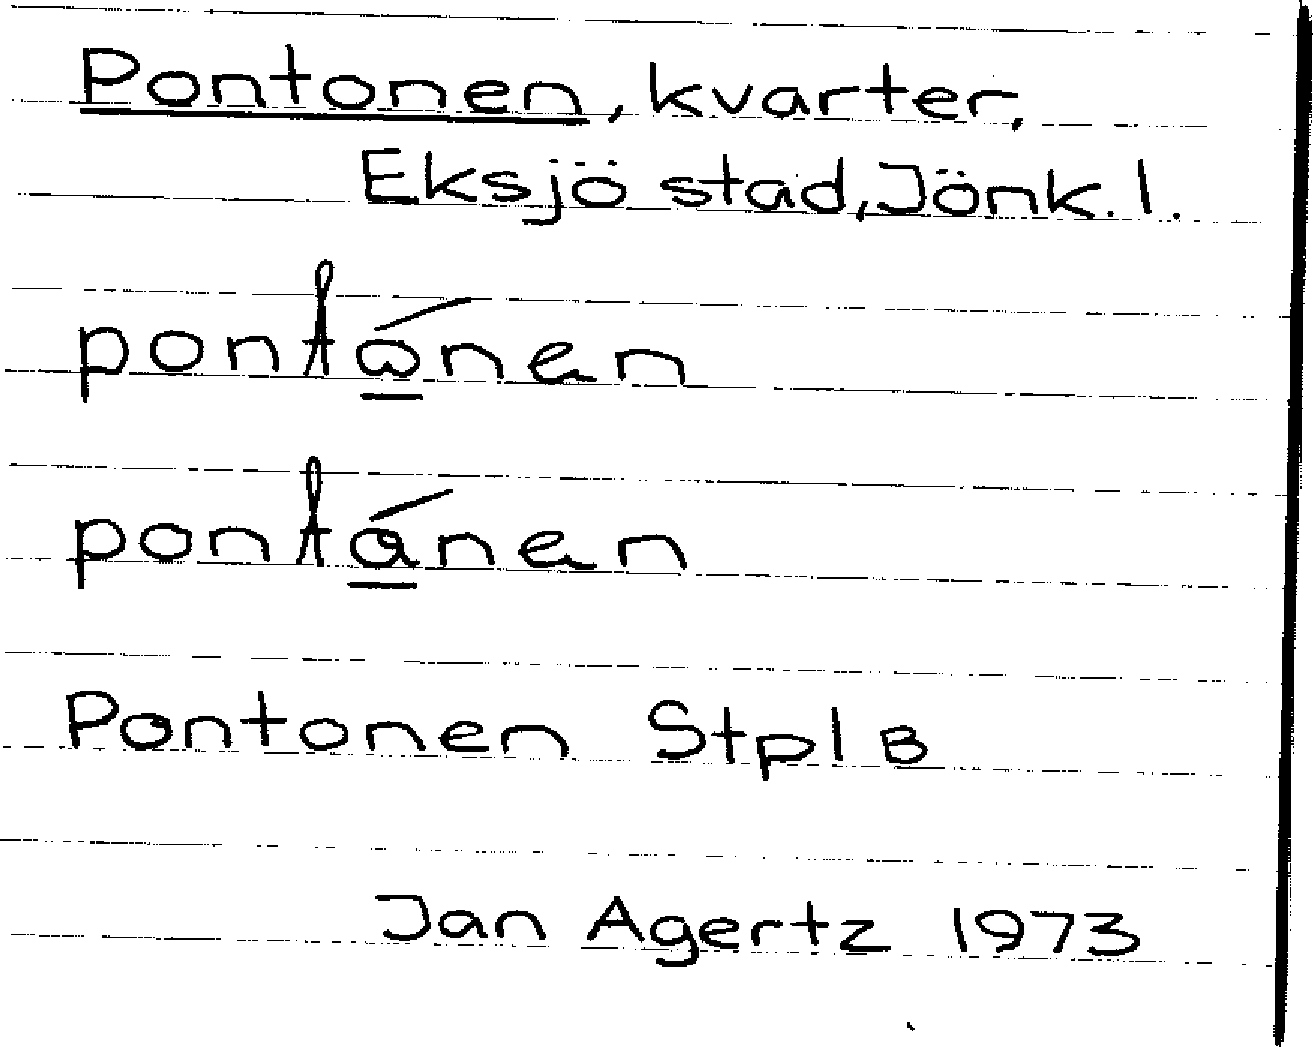 Pontonen, kvarter,
Eksjö stad, Jönk. l.
pontώnen
pontánen
Pontonen Stpl B
Jan Agertz 1973